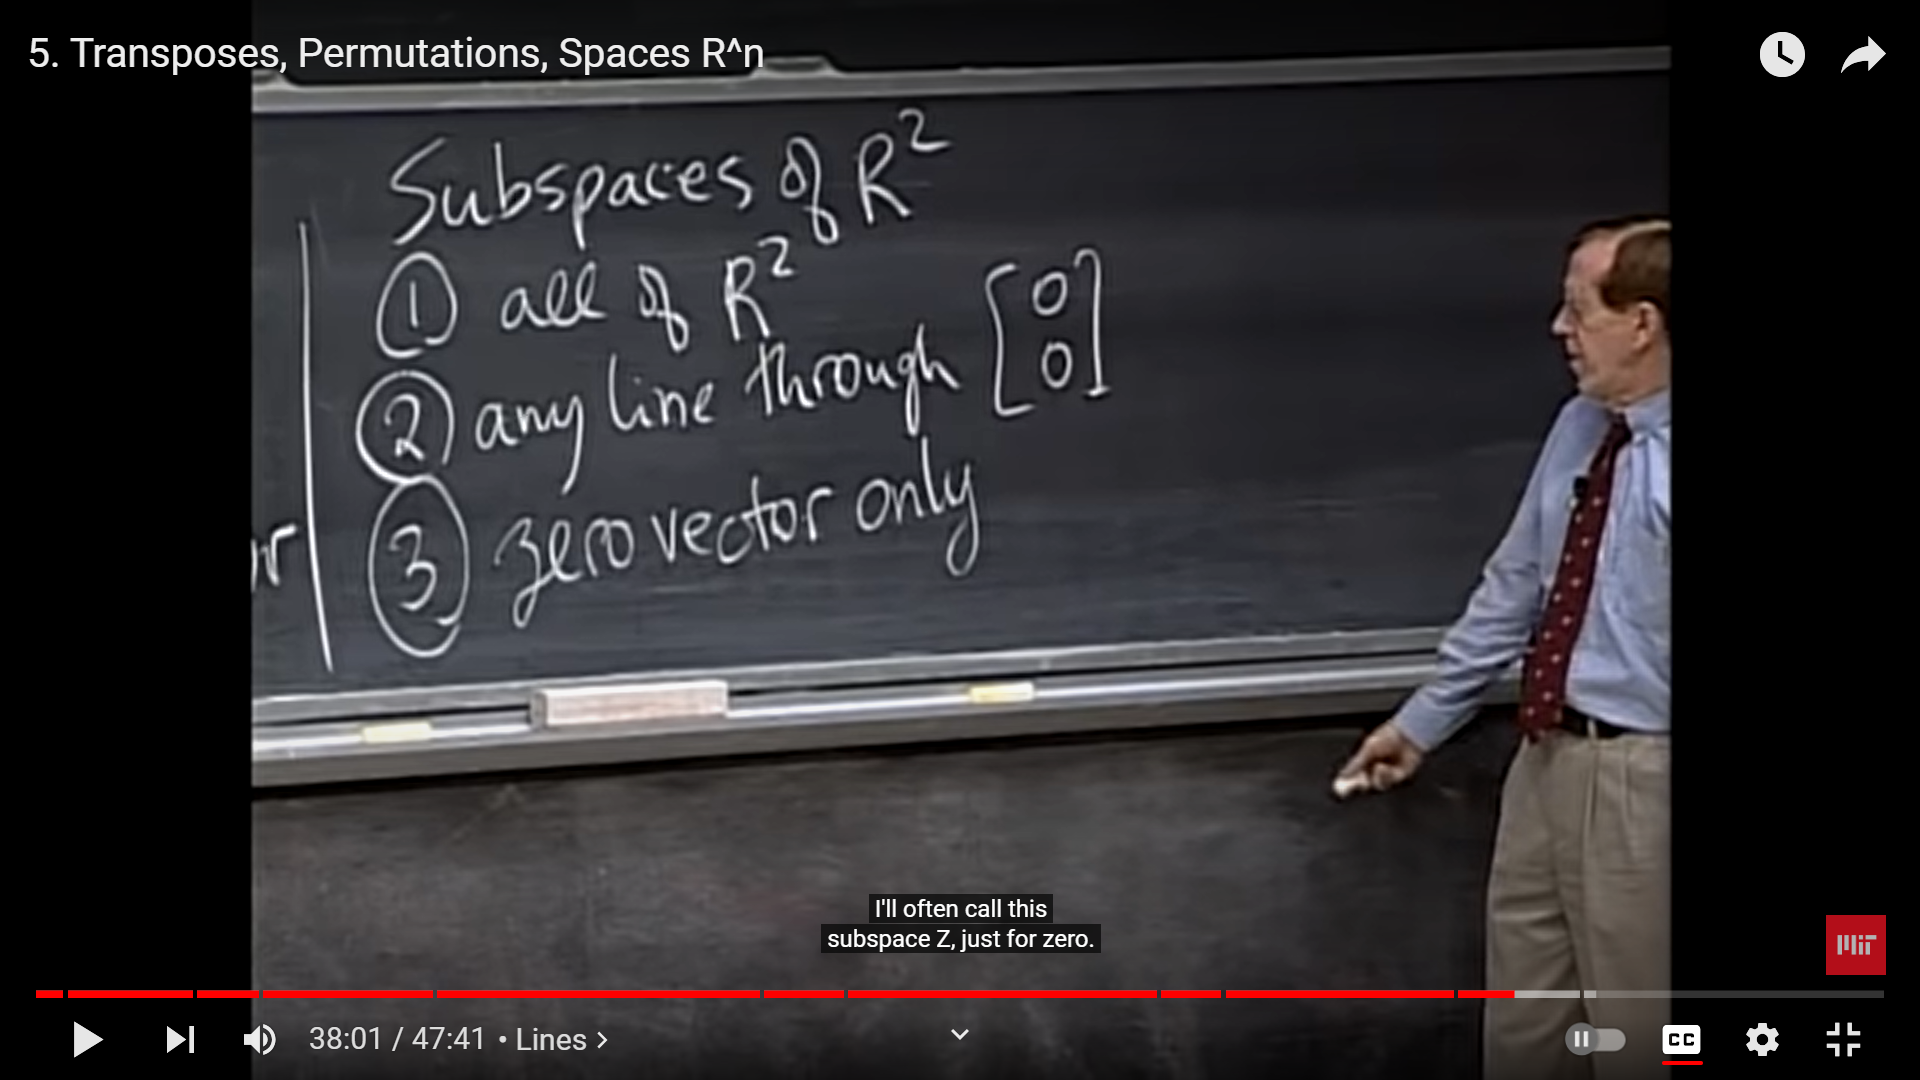 5. Transposes, Permutations, Spaces R^n
Subspaces of R²
① all of R²
② any line through [0 0]
③ zero vector only
or
I'll often call this
subspace Z, just for zero.
MIT
38:01 / 47:41 • Lines >
CC